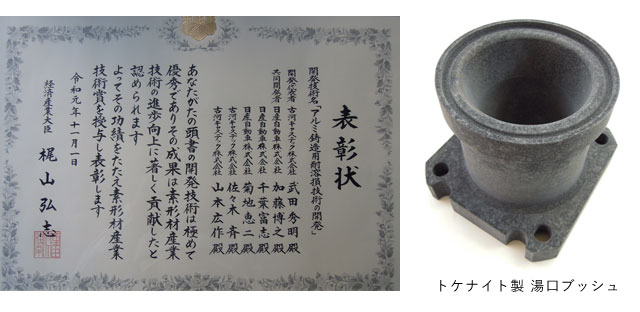 表彰状
開発技術名「アルミ鋳造用耐溶損技術の開発」
開発代表者 古河キャステック株式会社 武田秀明殿
共同開発者 日産自動車株式会社 加藤博之殿
日産自動車株式会社 千葉富志殿
日産自動車株式会社 菊地恵二殿
古河キャステック株式会社 佐々木斉殿
古河キャステック株式会社 山本宏作殿
あなたがたの頭書の開発技術は極めて
優秀でありその成果は素形材産業
技術の進歩向上に著しく貢献したと
認められます
よってその功績をたたえ素形材産業
技術賞を授与し表彰します
令和元年十一月一日
経済産業大臣 梶山弘志
トケナイト製 湯口ブッシュ